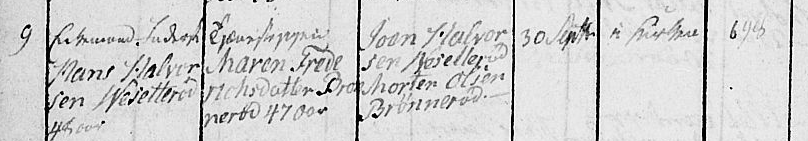 9
Hans Halvor
sen Wesetterød
48 aar
Maren Frede
richsdatter Brøn
nerød 47 aar
Joan Halvor
sen Wesetterød
Morten Olsen
Brønnerød.
30 Septr
i Kirken
698